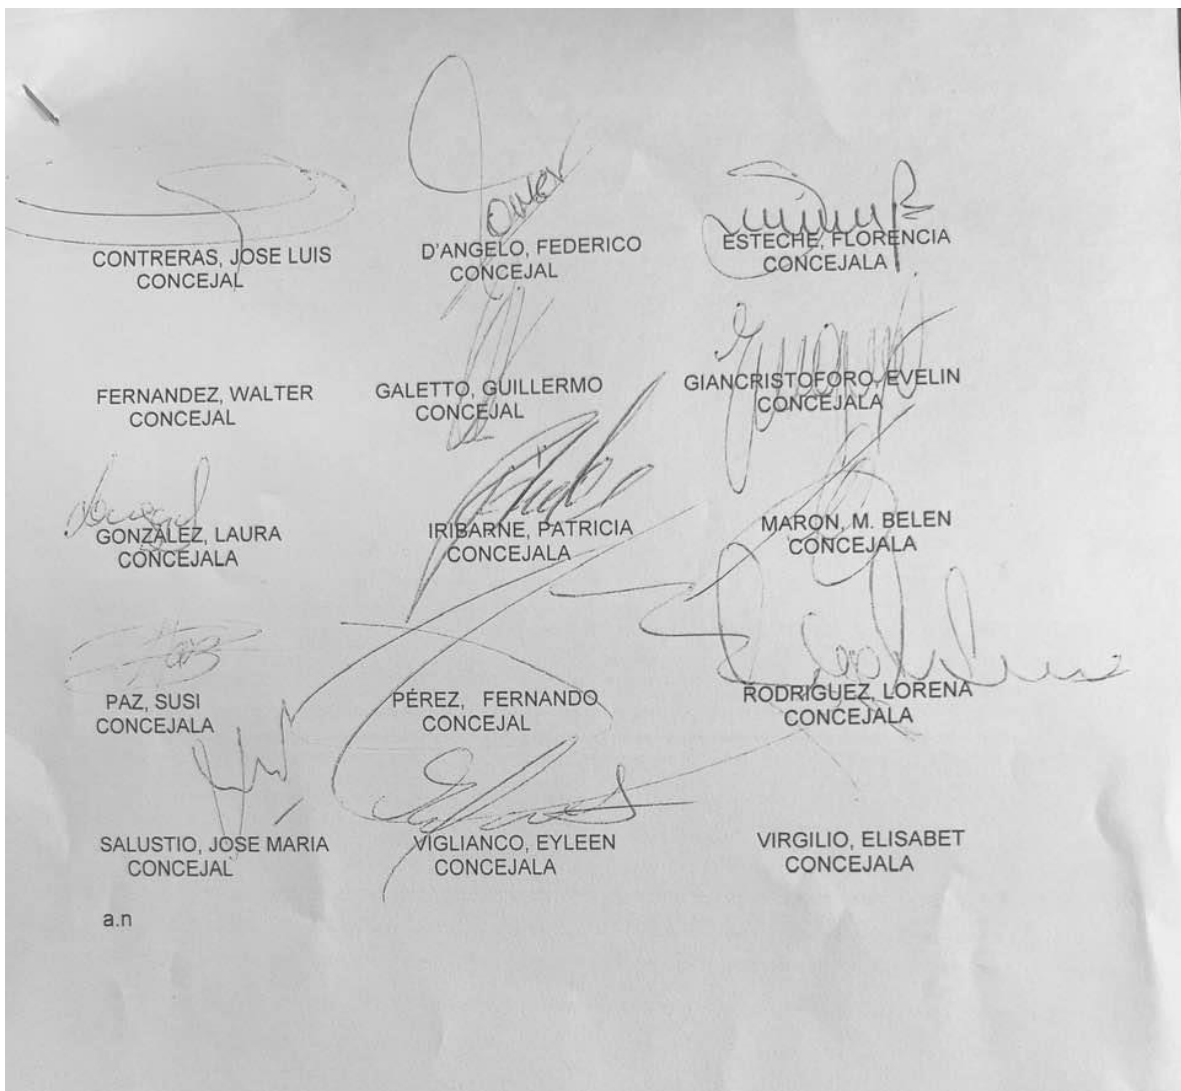 CONTRERAS, JOSE LUIS
CONCEJAL
D'ANGELO, FEDERICO
CONCEJAL
ESTECHE, FLORENCIA
CONCEJALA
FERNANDEZ, WALTER
CONCEJAL
GALETTO, GUILLERMO
CONCEJAL
GIANCRISTOFORO, EVELIN
CONCEJALA
GONZÁLEZ, LAURA
CONCEJALA
IRIBARNE, PATRICIA
CONCEJALA
MARON, M. BELEN
CONCEJALA
PAZ, SUSI
CONCEJALA
PÉREZ, FERNANDO
CONCEJAL
RODRIGUEZ, LORENA
CONCEJALA
SALUSTIO, JOSE MARIA
CONCEJAL
VIGLIANCO, EYLEEN
CONCEJALA
VIRGILIO, ELISABET
CONCEJALA
a.n